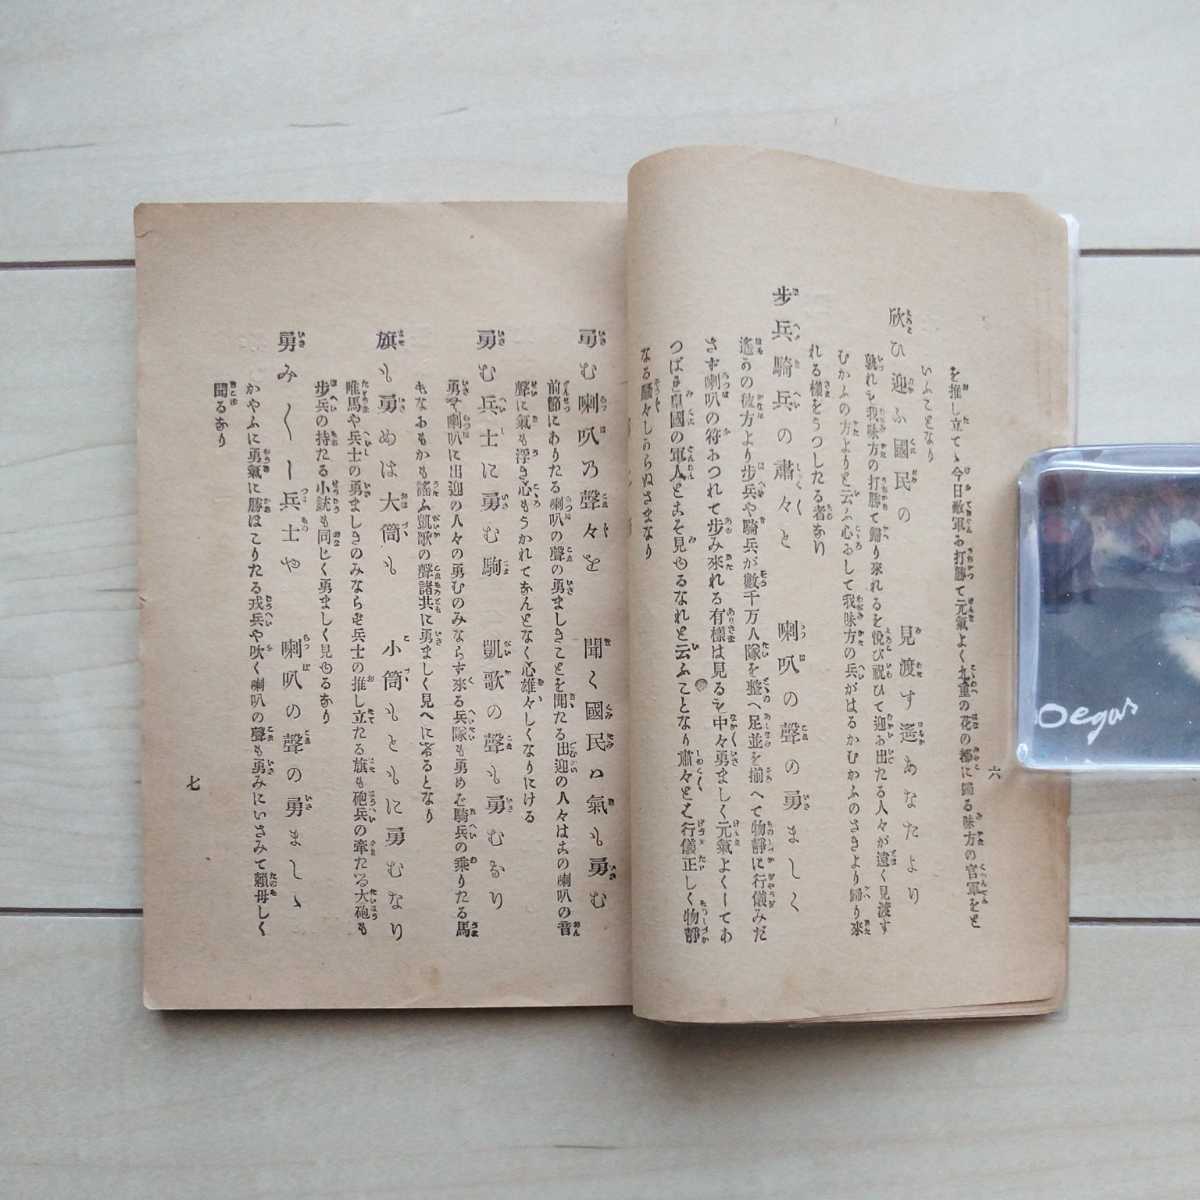 を推し立てゝ今日敵軍に打勝て元氣よく九重の花の都に歸る味方の官軍をと
いふことなり
欣ひ迎ふ國民の 見渡す遥あなたより
孰れも我味方の打勝て歸り來れるを悦び祝ひて迎に出たる人々が遠く見渡す
むかふの方よりと云ふ心にして我味方の兵がはるかむかふのさきより歸り來
れる樣をうつしたる者なり
步兵騎兵の肅々と 喇叭の聲の勇ましく
遙かの彼方より步兵や騎兵が數千万人隊を整へ足並を揃へて物靜に行儀みだ
さず喇叭の符につれて步み來れる有樣は見るも中々勇ましく元氣よくしてあ
つぱれ皇國の軍人とこそ見ゆるなれと云ふことなり肅々とは行儀正しく物靜
なる騒々しからぬさまなり
六
勇む喇叭の聲々を 聞く國民の氣も勇む
前節にありたる喇叭の聲の勇ましきことを聞たる出迎の人々はこの喇叭の音
聲に氣も浮き心もうかれてなんとなく心雄々しくなりにける
勇む兵士に勇む駒 凱歌の聲も勇むなり
勇で喇叭に出迎の人々の勇むのみならず來る兵隊も勇めば騎兵の乘りたる馬
もなおもかも謠ふ凱歌の聲諸共に勇ましく見へに
旗も勇めは大筒も 小筒もともに勇むなり
唯馬や兵士の勇ましきのみならず兵士の推し立たる旗も砲兵の牽たる大砲も
步兵の持たる小銃も同じく勇ましく見ゆるなり
勇み〱し兵士や 喇叭の聲の勇ましゝ
かやふに勇氣に勝ほこりたる戎兵や吹く喇叭の聲も勇みにいさみて賴母しく
聞るなり
七
Degas